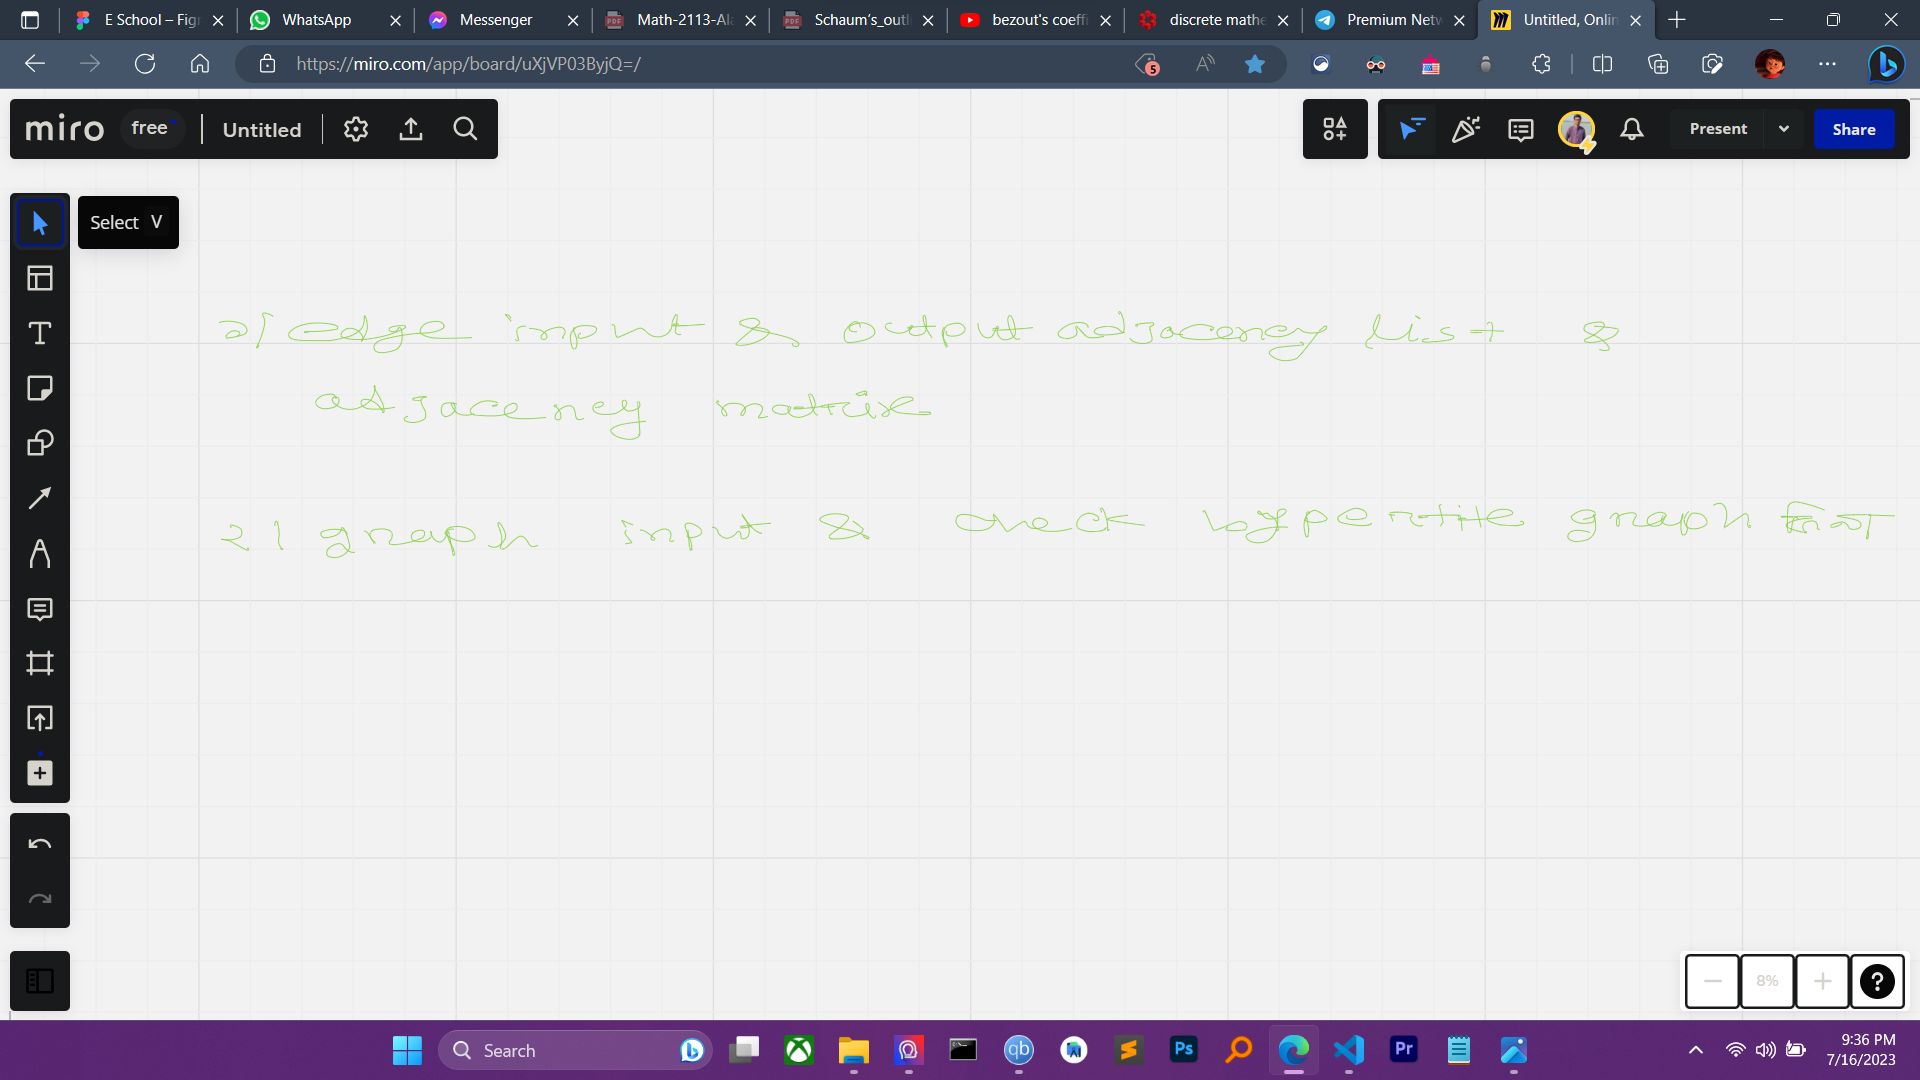 E School – Fig
WhatsApp
Messenger
Math-2113-Al
Schaum's_outl
bezout's coeff
discrete mathe
Premium Netw
Untitled, Onlin
https://miro.com/app/board/uXjVP03ByjQ=/
5
miro free Untitled
Present
Share
Select V
১/ edge input & output adjacency list &
adjacency matrix
২/ graph input & check bypertite graph কিনা
8%
Search
9:36 PM
7/16/2023